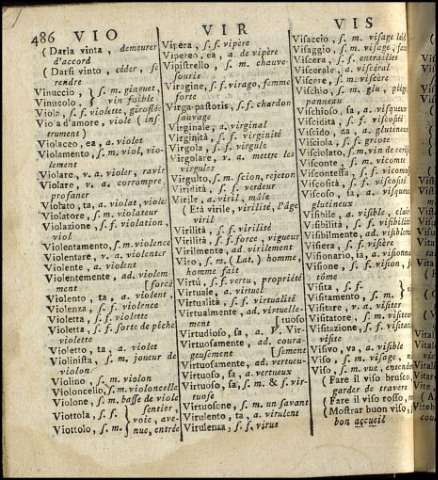 486 VIO
VIR
VIS
(Darla vinta, demeurer
d'accord
(Darsi vinto, céder, se
rendre
Vinuccio, } s. m. ginguet,
Vinucolo, } vin foible
Viola, s. f. violette, giroflée
Viola d'amore, viole (instrument)
Violaceo, ea, a. violet
Violamento, s. m. viol, violement
Violare, v. a. violer, ravir
Violare, v. a. corrompre,
profaner
Violato, ta, a. violat, violé
Violatore, s. m. violateur
Violazione, s. f. violation,
viol
Violentamento, s. m. violence
Violentare, v. a. violenter
Violente, a. violent
Violentemente, ad. violemment
[force
Violento, ta, a. violent
Violenza, s. f. violence
Violetta, s. f. violette
Violetta, s. f. sorte de pêche
violette
Violetto, ta, a. violet
Violinista, s. m. joueur de
violon
Violino, s. m. violon
Violoncello, s. m. violoncelle
Violone, s. m. basse de viole
Viottola, s. f. } sentier,
voie, ave-
Viottolo, s. m. } nue, entrée
Vipera, s. f. vipère
Vipereo, ea, a. de vipère
Vipistrello, s. m. chauve-
souris
Viragine, s. f. virago, femme
forte
Virga-pastoris, s. f. chardon
sauvage
Virginale, a. virginal
Virginità, s. f. virginité
Virgola, s. f. virgule
Virgolare, v. a. mettre les
virgules
Virgulto, s. m. scion, rejeton
Viridità, s. f. verdeur
Virile, a. viril, mâle
(Età virile, virilité, l'âge
viril
Virilità, s. f. virilité
Virilità, s. f. force, vigueur
Virilmente, ad. virilement
Viro, s. m. (Lat.) homme,
homme fait
Virtù, s. f. vertu, propriété
Virtuale, a. virtuel
Virtualità, s. f. virtualité
Virtualmente, ad. virtuellement
[tuoso
Virtudioso, sa, a. P. Vir-
Virtuosamente, ad. courageusement
[sement
Virtuosamente, ad. vertueu-
Virtuoso, sa, a. vertueux
Virtuoso, sa, s. m. & f. virtuose
Virtuosone, s. m. un savant
Virulento, ta, a. virulent
Virulenza, s. f. virus
Visaccio, s. m. visage laid
Visaggio, s. m. visage, face
Viscera, s. f. entrailles
Viscerale, a. viscéral
Viscere, s. m. viscère
Vischio, s. m. glu, piège,
panneau
Vischioso, sa, a. visqueux
Viscidità, s. f. viscosité
Viscido, da, a. glutineux
Visciola, s. f. griote
Visciolato, s. m. vin de cerises
Visconte, s. m. vicomte
Viscontessa, s. f. vicomtesse
Viscosità, s. f. viscosité
Viscoso, sa, a. visqueux,
glutineux
Visibile, a. visible, clair
Visibilità, s. f. visibilité
Visibilmente, ad. visiblement
Visiera, s. f. visière
Visionario, ia, a. visionnaire
Visione, s. f. vision, fantôme
Visita, s. f. }
Visitamento, s. m. }
Visitare, v. a. visiter
Visitatore, s. m. visiteur
Visitazione, s. f. visitation,
visite
Visivo, va, a. visible
Viso, s. m. visage,
Viso, s. m. vue,
(Fare il viso brusco,
garder de travers
(Fare il viso rosso,
(Mostrar buon viso,
bon accueil